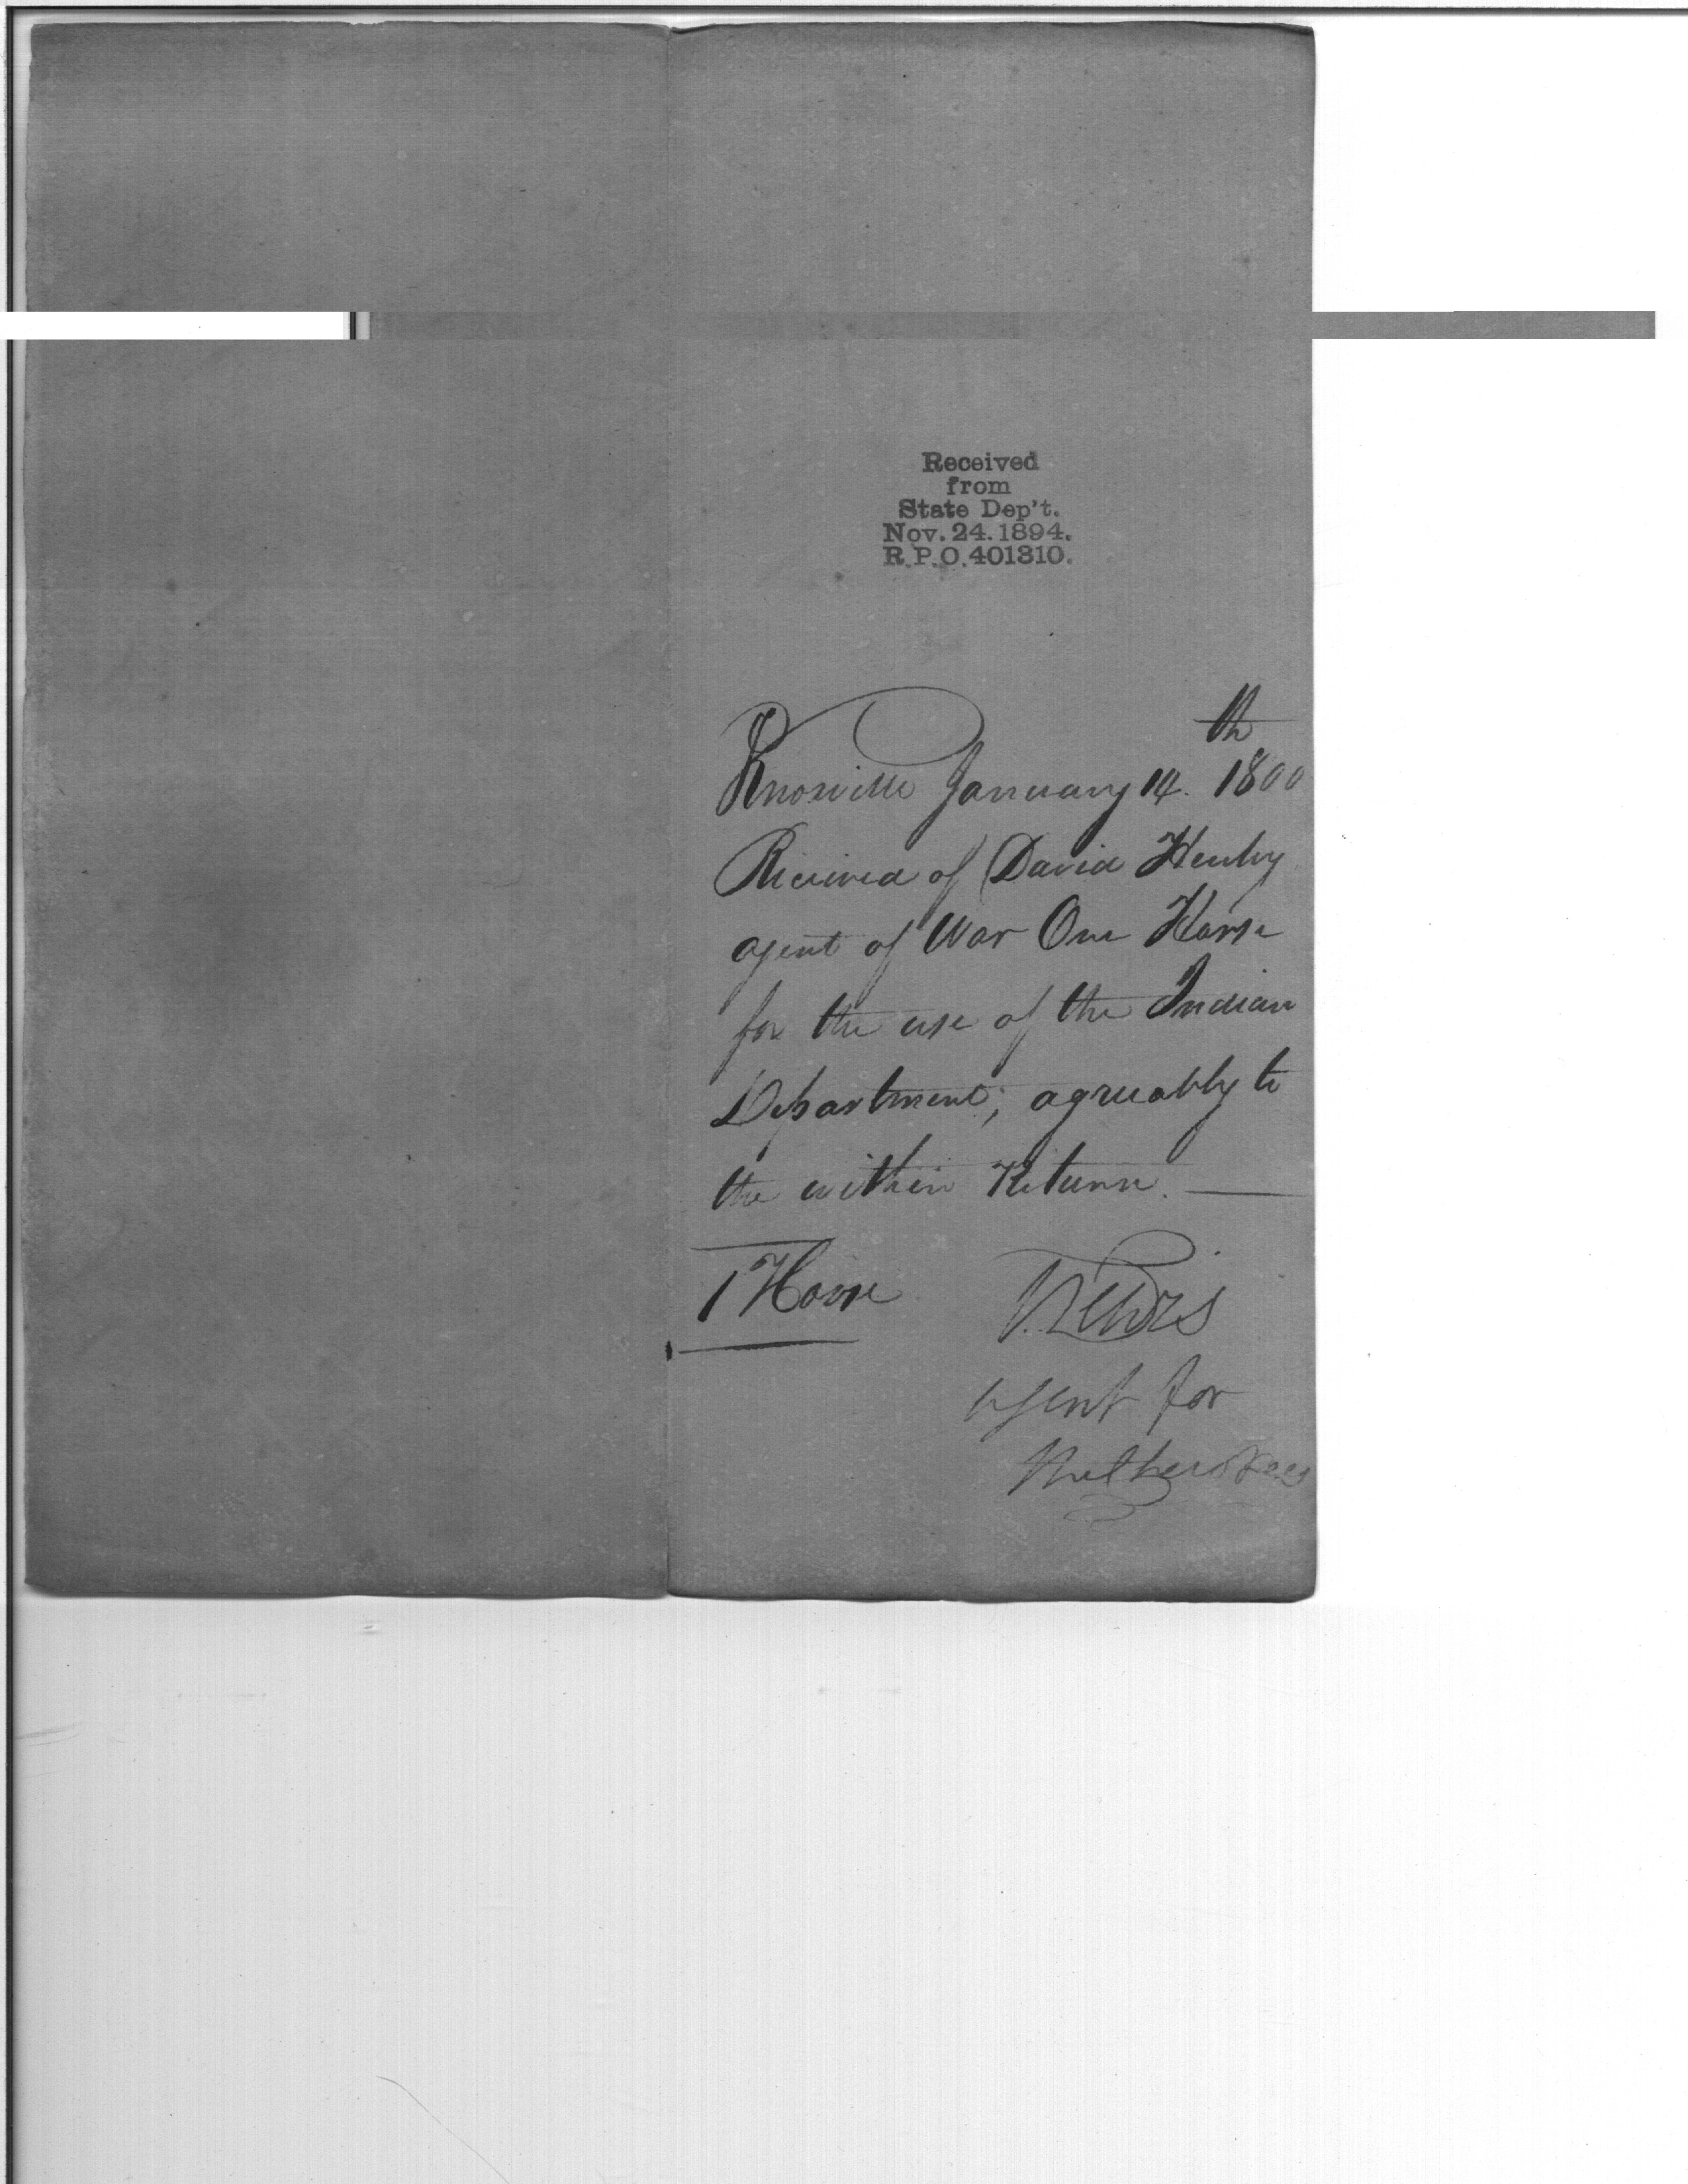 Received
from
State Dep't.
Nov. 24. 1894.
R.P.O. 401310.
Knoxville January 14th. 1800
Received of David Henley
agent of War One Horse
for the use of the Indian
Department; agreeably to
the within Return.
1 Horse
Lewis
agent for
the Cherokees